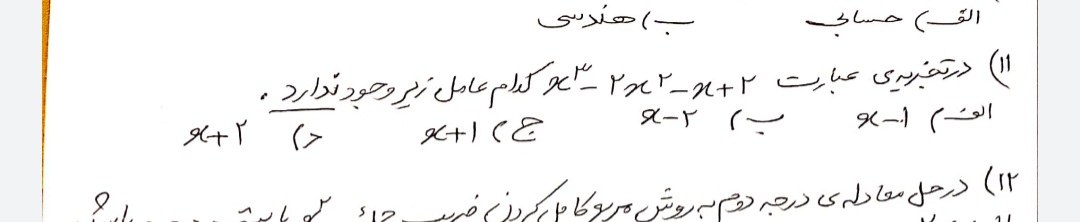 الف) حسابی ب) هندسی
۱۱) در تجزیه‌ی عبارت x³ - ۲x² - x + ۲ کدام عامل زیر وجود ندارد.
الف) x-۱ ب) x-۲ ج) x+۱ د) x+۲
۱۲) در حل معادله‌ی درجه دوم به روش مربع کامل کردن ضریب